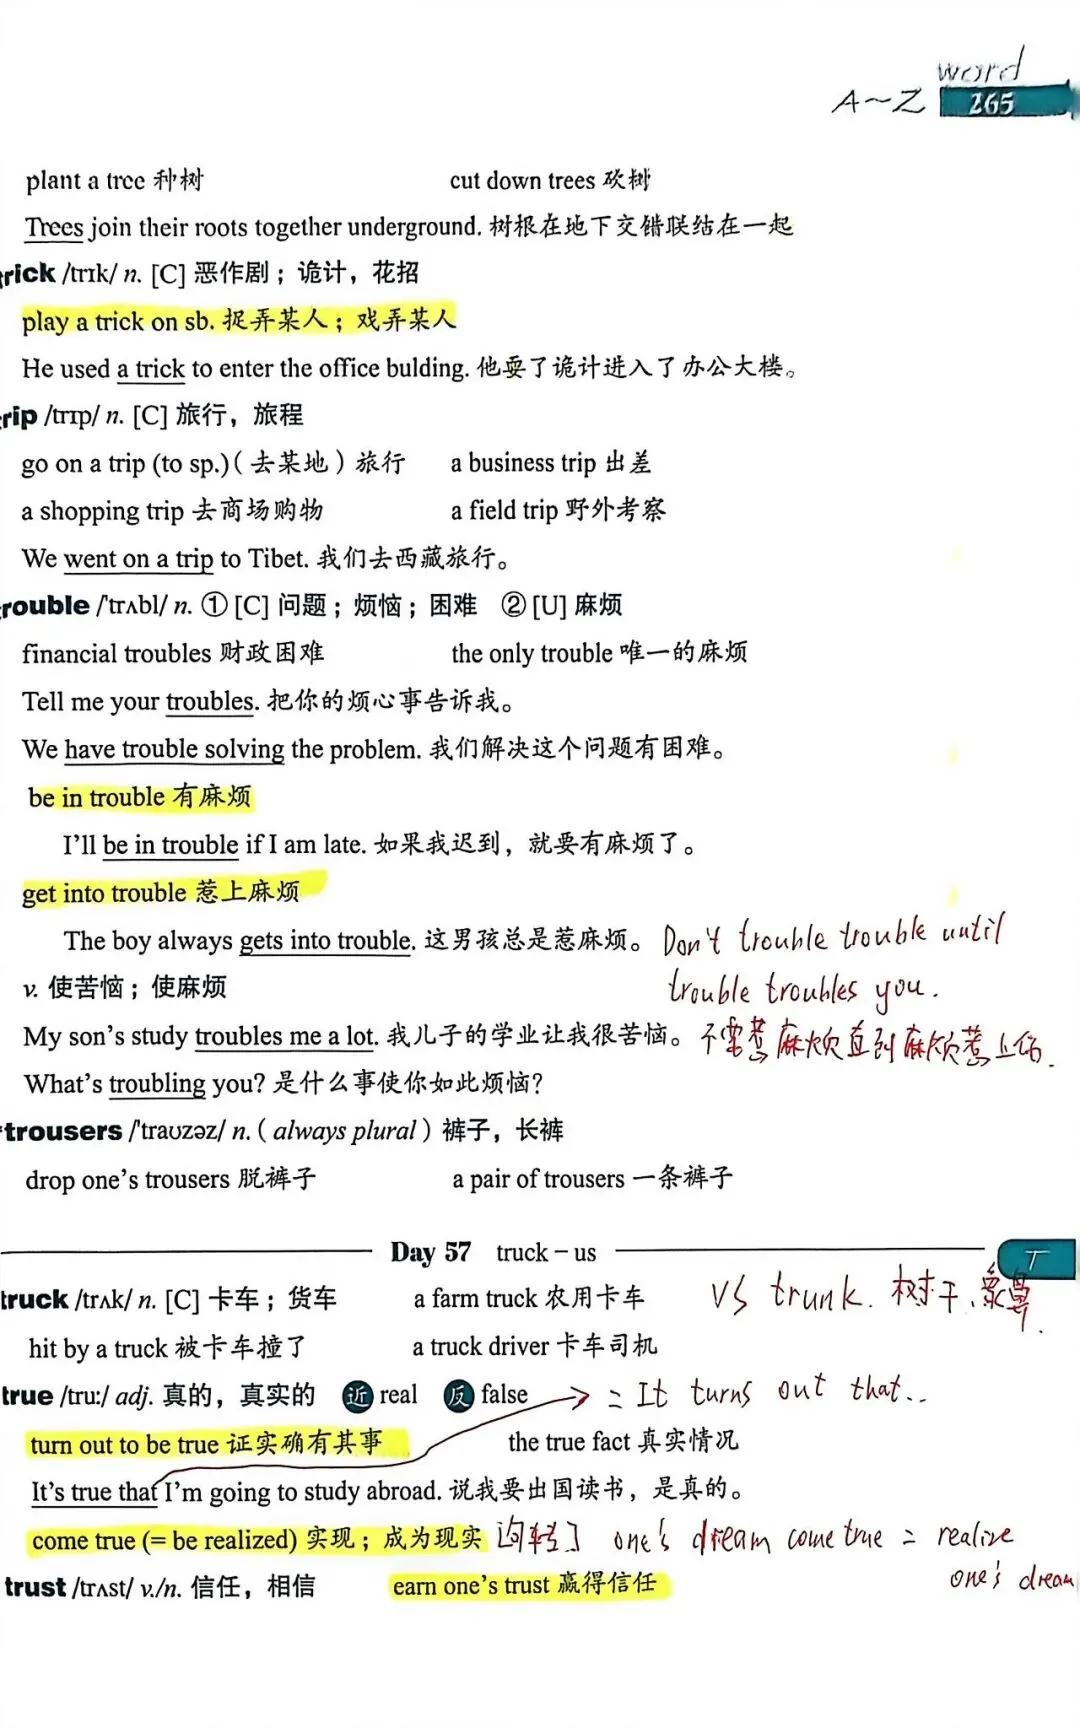 word
A~Z 265
plant a tree 种树 cut down trees 砍树
Trees join their roots together underground. 树根在地下交错联结在一起
rick /trɪk/ n. [C] 恶作剧；诡计，花招
play a trick on sb. 捉弄某人；戏弄某人
He used a trick to enter the office bulding. 他耍了诡计进入了办公大楼。
rip /trɪp/ n. [C] 旅行，旅程
go on a trip (to sp.)（去某地）旅行 a business trip 出差
a shopping trip 去商场购物 a field trip 野外考察
We went on a trip to Tibet. 我们去西藏旅行。
rouble /'trʌbl/ n. ① [C] 问题；烦恼；困难 ② [U] 麻烦
financial troubles 财政困难 the only trouble 唯一的麻烦
Tell me your troubles. 把你的烦心事告诉我。
We have trouble solving the problem. 我们解决这个问题有困难。
be in trouble 有麻烦
I'll be in trouble if I am late. 如果我迟到，就要有麻烦了。
get into trouble 惹上麻烦
The boy always gets into trouble. 这男孩总是惹麻烦。 Don't trouble trouble until
v. 使苦恼；使麻烦 trouble troubles you.
My son's study troubles me a lot. 我儿子的学业让我很苦恼。 不要惹麻烦直到麻烦惹上你.
What's troubling you? 是什么事使你如此烦恼?
trousers /'traʊzəz/ n.（always plural）裤子，长裤
drop one's trousers 脱裤子 a pair of trousers 一条裤子
Day 57 truck – us T
truck /trʌk/ n. [C] 卡车；货车 a farm truck 农用卡车 VS trunk. 树干、象鼻.
hit by a truck 被卡车撞了 a truck driver 卡车司机
true /tru:/ adj. 真的，真实的 近 real 反 false → = It turns out that..
turn out to be true 证实确有其事 the true fact 真实情况
It's true that I'm going to study abroad. 说我要出国读书，是真的。
come true (= be realized) 实现；成为现实 one's dream come true = realize
trust /trʌst/ v./n. 信任，相信 earn one's trust 赢得信任 one's dream